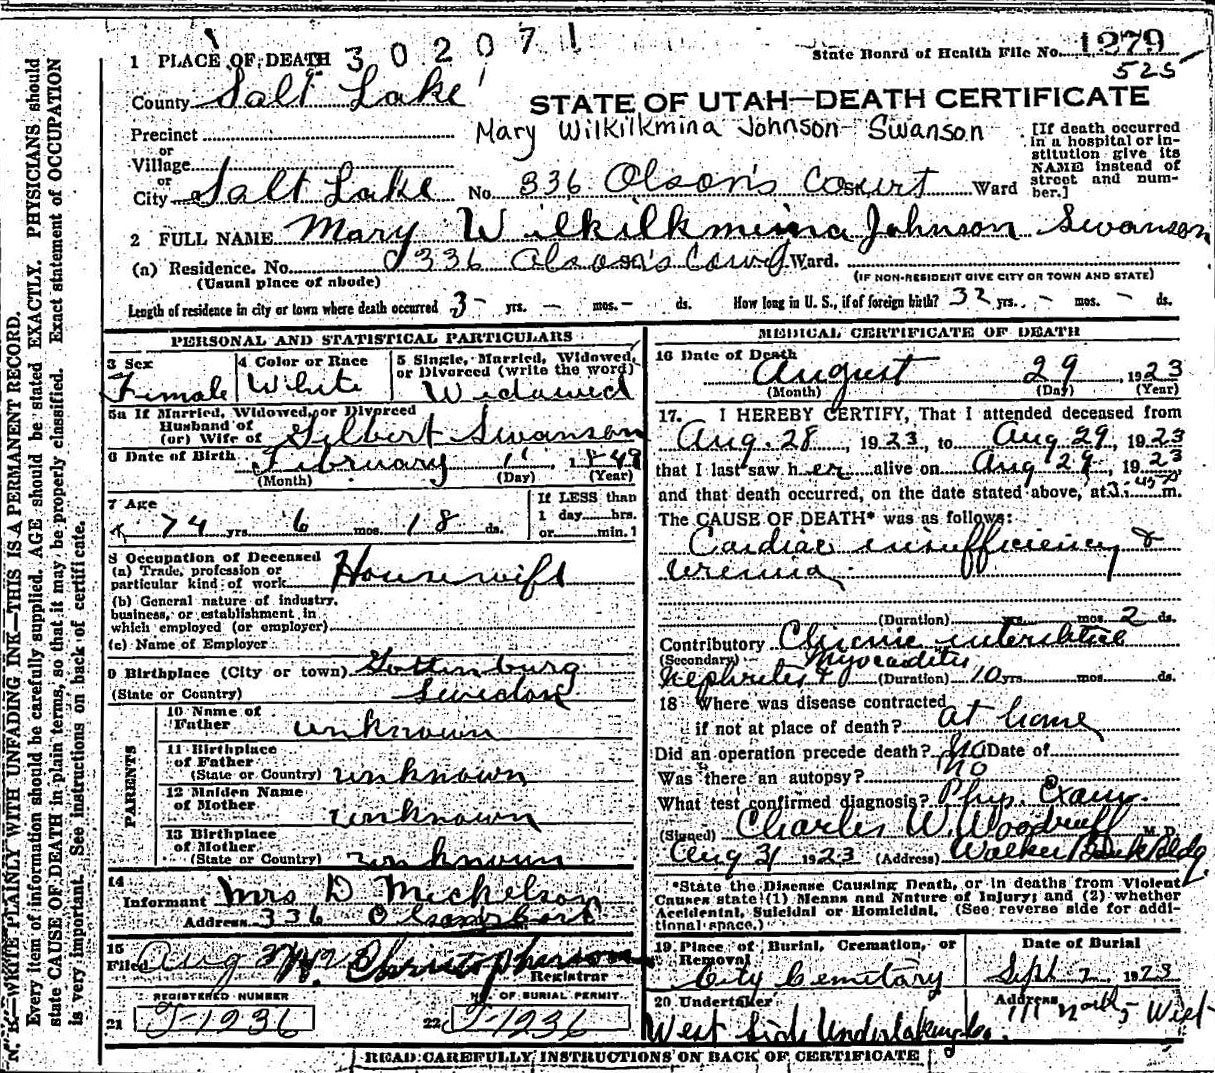 1 PLACE OF DEATH 3 0 2 0 7 1
State Board of Health File No. 1279
525
County Salt Lake
STATE OF UTAH—DEATH CERTIFICATE
Precinct
Mary Wilkilkmina Johnson Swanson
or
Village
or
City Salt Lake No. 336 Olson's Court St. Ward
[If death occurred in a hospital or institution give its NAME instead of street and number.]
2 FULL NAME Mary Wilkilkmina Johnson Swanson
(a) Residence. No. 336 Olson's Court Ward.
(Usual place of abode)
(IF NON-RESIDENT GIVE CITY OR TOWN AND STATE)
Length of residence in city or town where death occurred 3 yrs. — mos. — ds. How long in U. S., if of foreign birth? 32 yrs. - mos. - ds.
PERSONAL AND STATISTICAL PARTICULARS
3 Sex
Female
4 Color or Race
White
5 Single, Married, Widowed, or Divorced (write the word)
Widowed
5a If Married, Widowed, or Divorced
Husband of
(or) Wife of Gilbert Swanson
6 Date of Birth February 11, 1849
(Month) (Day) (Year)
7 Age
74 yrs. 6 mos. 18 ds.
If LESS than
1 day hrs.
or min.
8 Occupation of Deceased
(a) Trade, profession or
particular kind of work Housewife
(b) General nature of industry,
business, or establishment in
which employed (or employer)
(c) Name of Employer
9 Birthplace (City or town) Gottenburg
(State or Country) Sweden
PARENTS
10 Name of
Father unknown
11 Birthplace
of Father
(State or Country) unknown
12 Maiden Name
of Mother unknown
13 Birthplace
of Mother
(State or Country) unknown
14
Informant Mrs D Mickelson
Address 336 Olsons Court
15
Filed Aug
Christopherson
Registrar
REGISTERED NUMBER
21 J-1236
NO OF BURIAL PERMIT
22 J-1236
MEDICAL CERTIFICATE OF DEATH
16 Date of Death
August 29, 1923
(Month) (Day) (Year)
17. I HEREBY CERTIFY, That I attended deceased from
Aug. 28, 1923, to Aug 29, 1923
that I last saw her alive on Aug 29, 1923
and that death occurred, on the date stated above, at 3:45 P m.
The CAUSE OF DEATH* was as follows:
Cardiac insufficiency &
uremia
(Duration) yrs. mos. 2 ds.
Contributory Chronic interstitial
(Secondary) Myocarditis
nephritis & (Duration) 10 yrs. mos. ds.
18 Where was disease contracted
if not at place of death? at home
Did an operation precede death? no Date of
Was there an autopsy? no
What test confirmed diagnosis? Phys. Exam.
(Signed) Charles W. Woodruff M. D.
Aug 31 1923 (Address) Walker Bank Bldg.
*State the Disease Causing Death, or in deaths from Violent
Causes state (1) Means and Nature of Injury; and (2) whether
Accidental, Suicidal or Homicidal. (See reverse side for additional space.)
19 Place of Burial, Cremation, or
Removal
City Cemetary
Date of Burial
Sept 2 1923
20 Undertaker
West Side Undertaking Co.
Address
111 North 5 West
READ CAREFULLY INSTRUCTIONS ON BACK OF CERTIFICATE
N. B.—WRITE PLAINLY WITH UNFADING INK—THIS IS A PERMANENT RECORD.
Every item of information should be carefully supplied. AGE should be stated EXACTLY. PHYSICIANS should
state CAUSE OF DEATH in plain terms, so that it may be properly classified. Exact statement of OCCUPATION
is very important. See instructions on back of certificate.